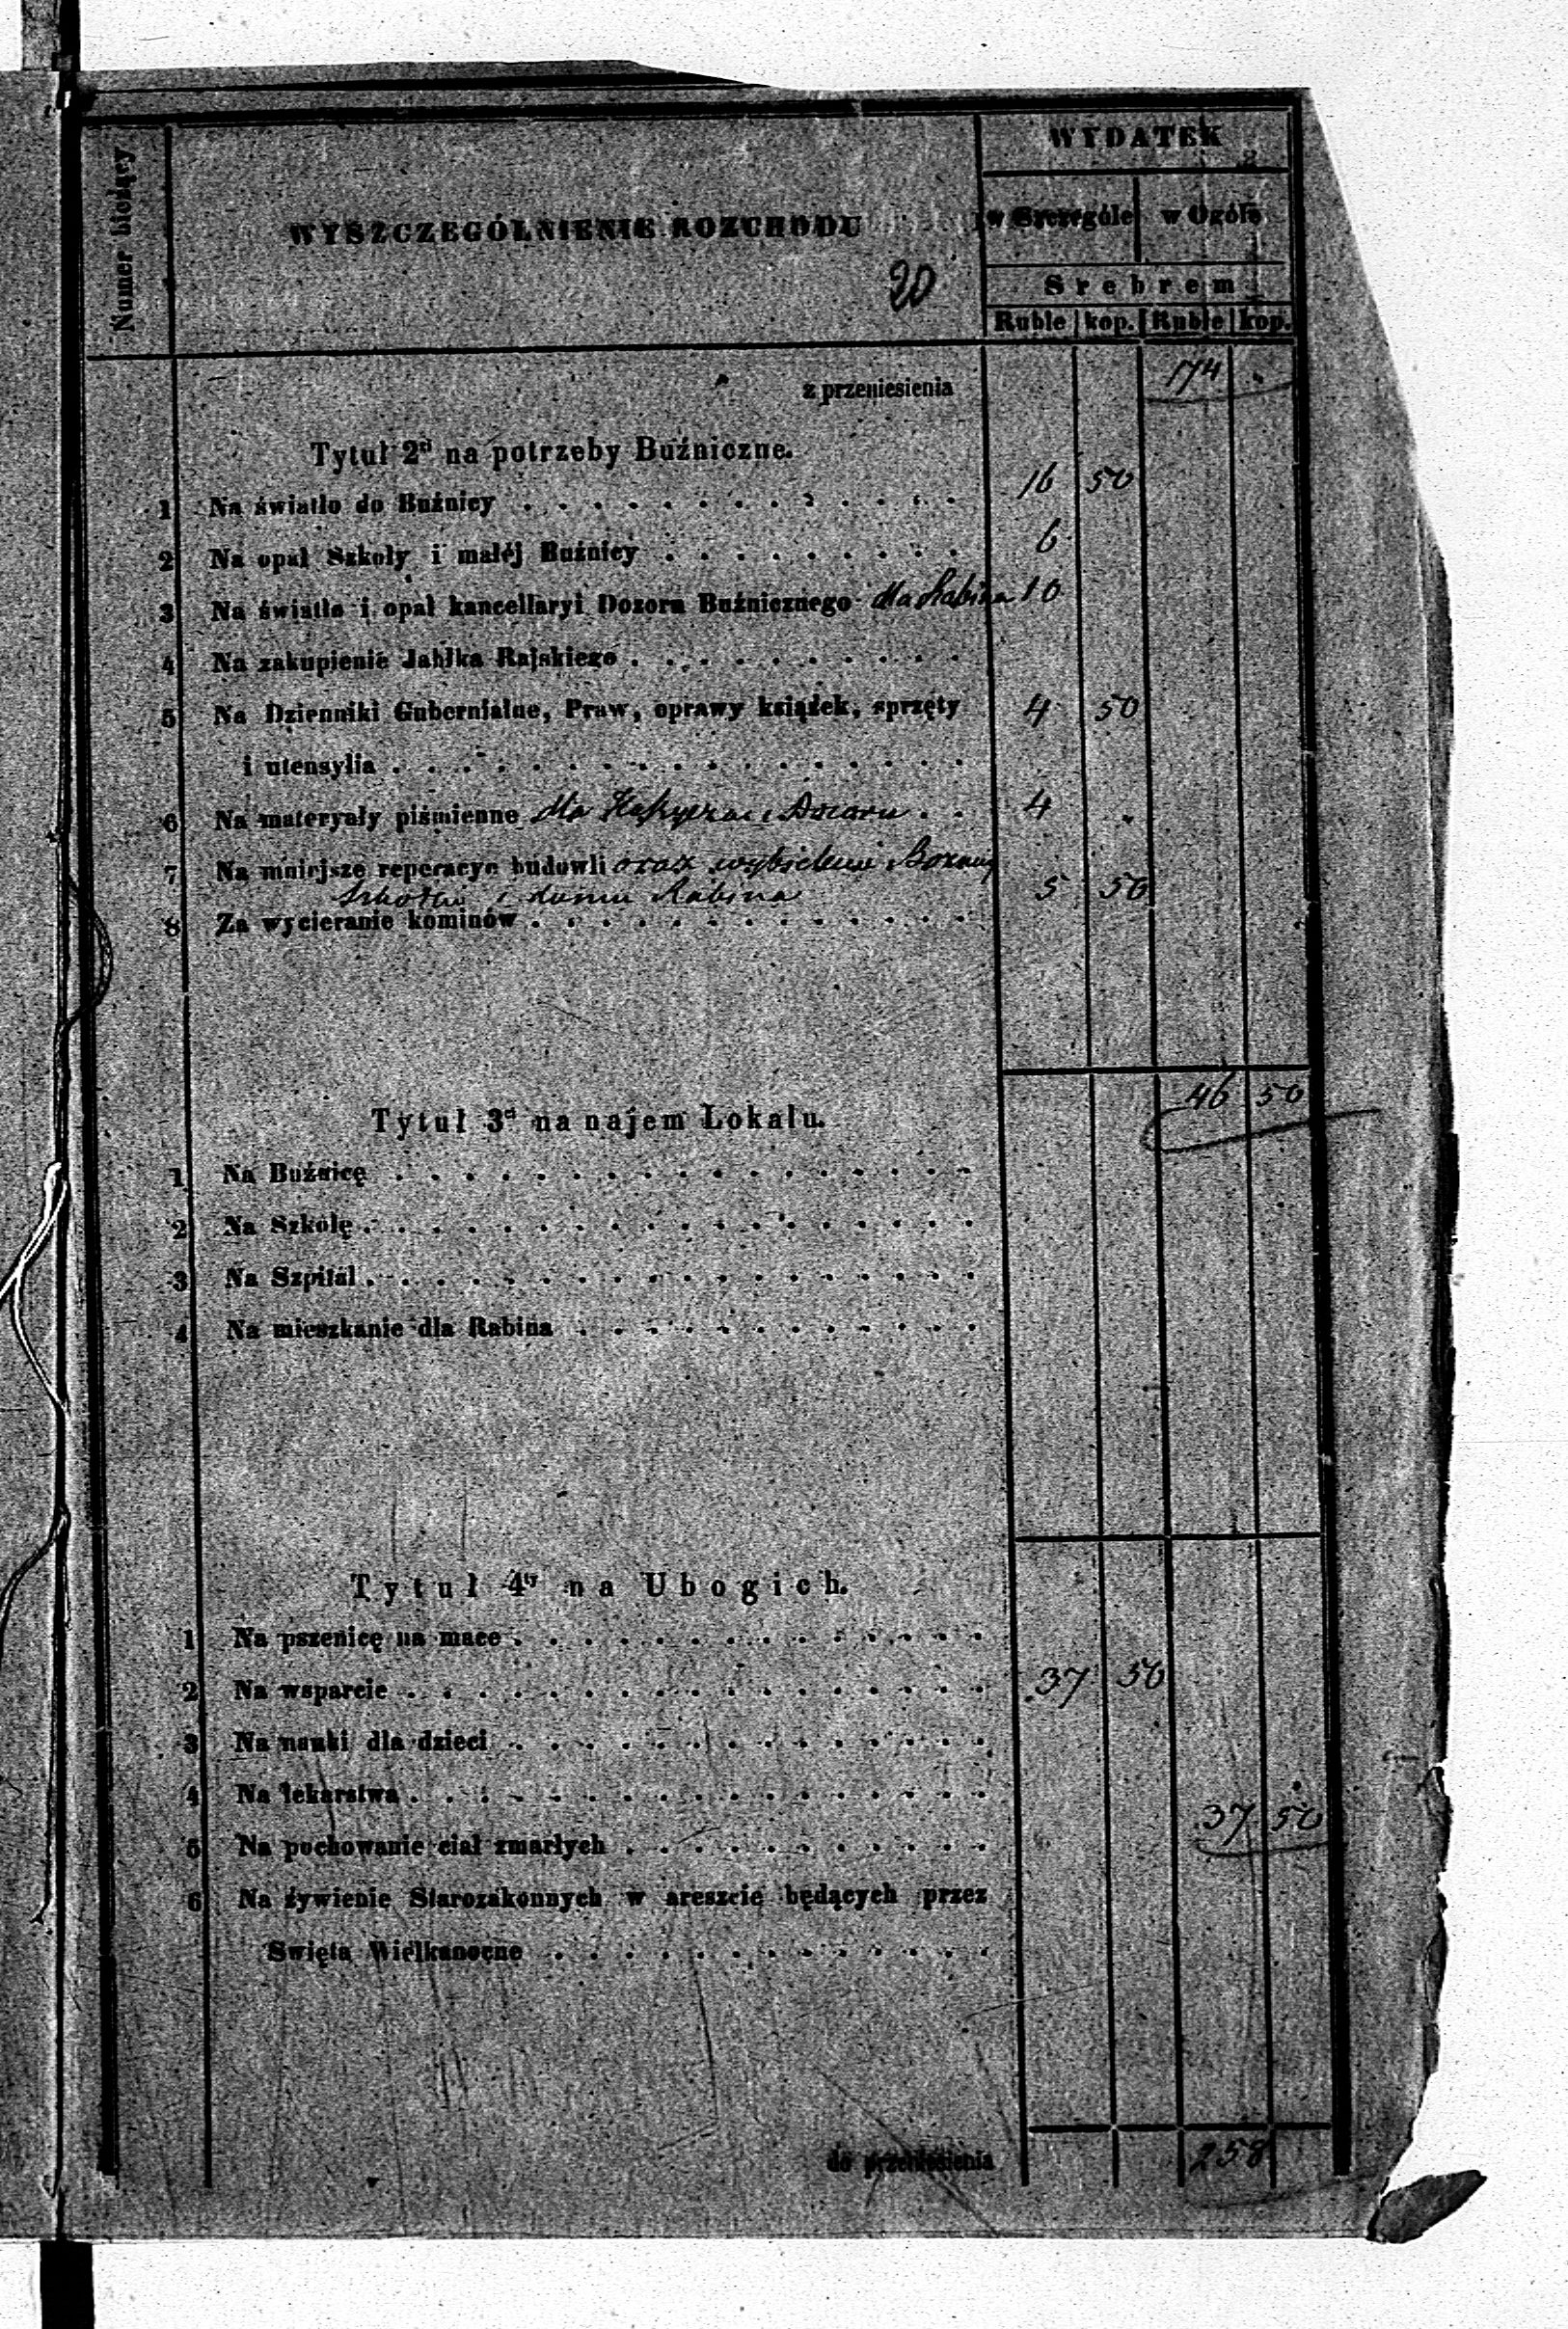 Numer bieżący
WYSZCZEGÓLNIENIE ROZCHODU
20
WYDATEK
w Szczególe w Ogóle
Srebrem
Ruble kop. Ruble kop.
z przeniesienia 174 .
Tytuł 2ᵈ na potrzeby Buźniczne.
1 Na światło do Buźnicy 16 50
2 Na opał Szkoły i małéj Buźnicy 6
3 Na światło i opał kancellaryi Dozoru Buźnicznego dla Rabina 10
4 Na zakupienie Jabłka Rajskiego
5 Na Dzienniki Gubernialne, Praw, oprawy książek, sprzęty 4 50
i utensylia
6 Na materyały piśmienne dla Dozoru 4 .
7 Na mniejsze reperacye budowli oraz
Szkołki i domu Rabina 5 50
8 Za wycieranie kominów
46 50
Tytuł 3ᵃ na najem Lokalu.
1 Na Buźnicę
2 Na Szkołę
3 Na Szpital
4 Na mieszkanie dla Rabina
Tytuł 4ᵗʸ na Ubogich.
1 Na pszenicę na mace
2 Na wsparcie 37 50
3 Na nauki dla dzieci
4 Na lekarstwa
37 50
5 Na pochowanie ciał zmarłych
6 Na żywienie Starozakonnych w areszcie będących przez
Swięta Wielkanocne
do przeniesienia 258